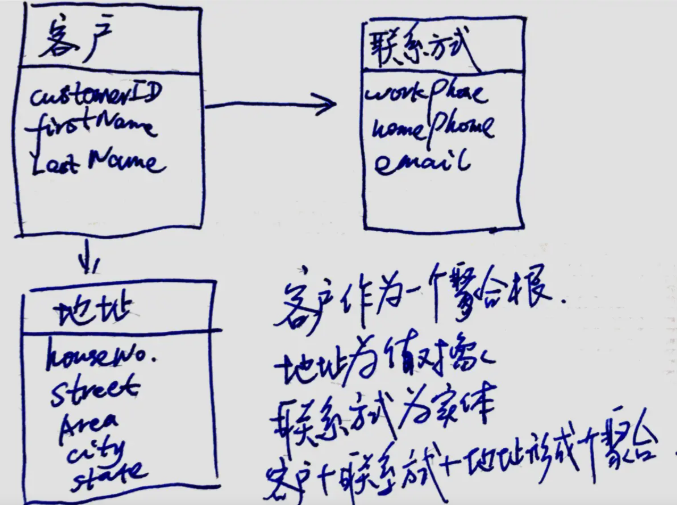 客户
customerID
firstName
Last Name
联系方式
workPhone
homePhone
email
地址
houseNo.
Street
Area
city
state
客户作为一个聚合根.
地址为值对象
联系方式为实体
客户+联系方式+地址形成个聚合.